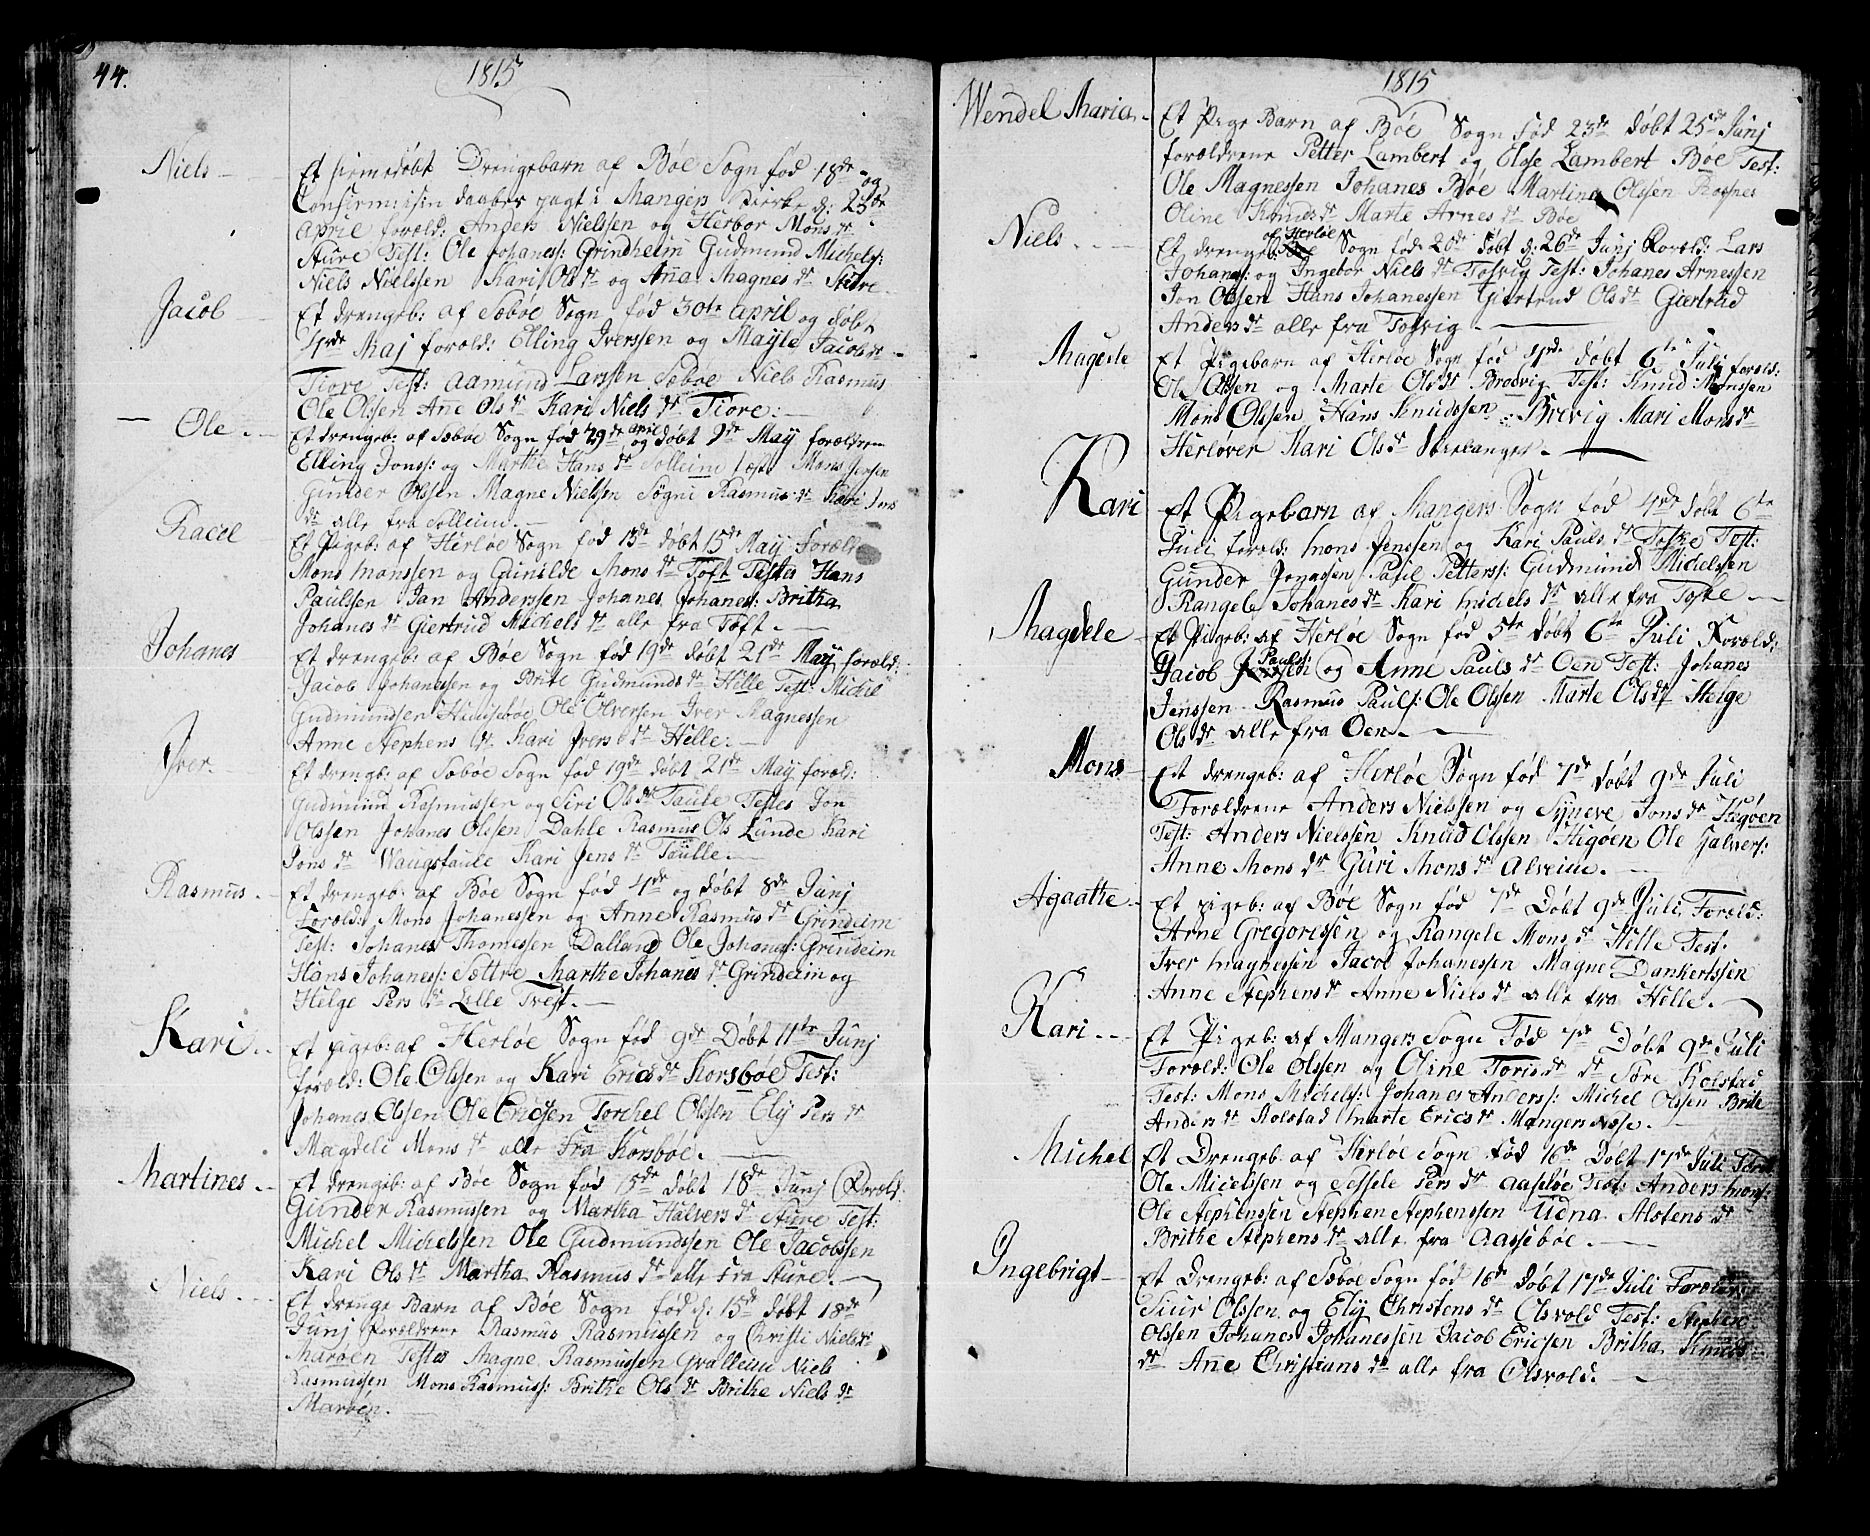 44.
1815
Niels
Et hiemedøbt Drengebarn af Bøe Sogn fød 18de og
Confirm: i sin daab i Mangers Kierke d: 23de
April foræld: Anders Nielssen og Herbor Mons dr
Sture Test: Ole Johaness: Grindheim Gudmund Michels:
Niels Nielssen Kari Ols dr og Anna Magnes dr Sture
Jacob
Et drengeb: af Sæbøe Sogn fød 30te April og døbt
Maj foræld: Elling Iverssen og Mayle Jacobs dr
Tiore Test: Aamund Larssen Sæboe Niels Rasmus
Ole Olssen Anne Ols dr Kari Niels dr Tiore:
Ole
Et drengeb: af Sæbøe Sogn fød 29de april og døbt May forældren
Elling Jonss: og Marthe Hans dr Solleim test Mons
Gunder Olssen Magne Nielssen Søgni Rasmus dr Kari Jens
dr alle fra Solleim.
Racel
Et Pigeb: af Herløe Sogn fød 13de døbt 15de May Foræld
Mons Monssen og Gunilde Mons dr Toft Testes Hans
Paulssen Jan Anderssen Johanes Johanes: Britha
Johanes dr Giertrud Michels dr alle fra Toft.
Johanes
Et drengeb: af Bøe Sogn fød 19de døbt 21de May foræld:
Jacob Johanessen og Brite Gudmunds dr Hille Test: Michel
Gudmundsen Ole Olversen Iver Magnessen
Anne Stephens dr Kari Ivers dr Hille.
Iver
Et drengb: af Sæbøe Sogn fød 19de døbt 21de May foræld:
Gudmund Rasmussen og Siri Ols dr Taule Testes Jon
Olssen Johanes Olssen Dahle Rasmus Ols Lunde Kari
Jons dr Waugstaule Kari Jens dr Taulle.
Rasmus
Et drengeb: af Bøe Sogn fød 4de og døbt 8de Junj
Foræld: Mons Johanessen og Anne Rasmus dr Grindeim
Test: Johanes Thomessen Dalland Ole Johanes: Grindeim
Hans Johaness: Sættre Marthe Johanes dr Grindeim og
Helge Pers dr Lille Tvest.
Kari
Et pigeb: af Herløe Sogn fød 9de Døbt 11te Junj
foræld: Ole Olssen og Kari Erics dr Korsbøe Test:
Johanes Olssen Ole Ericsen Torchel Olssen Ely Pers dr
Magdeli Mons dr alle Fra Korsbøe.
Martines
Et drengeb: af Bøe Sogn fød 15de døbt 18de Junj Foræld:
Gunder Rasmussen og Martha Halvers dr Sture Test:
Michel Michelssen Ole Gudmundssen Ole Jacobssen
Kari Ols dr Martha Rasmus dr alle Fra Sture.
Niels
Et drenge Barn af Bøe Sogn fød d: 15de døbt 18de
Junj Forældrene Rasmus Rasmussen og Christi Niels dr
Marøen Testes Magne Rasmussen Qvalleim Niels
Rasmussen Mons Rasmuss: Brithe Ols dr Brithe Niels dr
Marøen.
1815
Wendel Maria
Et Pige Barn af Bøe Sogn fød 23de døbt 25de Junj
forældrene Petter Lambert og Elsse Lambert Bøe Test:
Ole Magnessen Johanes Bøe Martina Olssen Rosnes
Oline Knuds dr Marte Arnes dr Bøe
Niels
Et drengeb: af Herløe Sogn fød 20de døbt d: 26de Junj Foræld: Lars
Johanes: og Ingebor Niels dr Tosvig Test: Johanes Arnessen
Jon Olssen Hans Johanessen Giertrud Ols dr Giertrud
Anders dr alle fra Tosvig.
Mageste
Et Pigebarn af Herløe Sogn fød 4de døbt 6te Juli foræld:
Ole Olssen og Marte Ols dr Brodvig Test: Knud Monssen
Mons Olssen Hans Knudssen Brevig Mari Mons dr
Herløver Mari Ols dr
Kari
Et Pigebarn af Mangers Sogn fød 4de døbt 6te
Juli foræld: Mons Jenssen og Kari Pauls dr Toske Test:
Gunder Jonassen Paul Petterss: Gudmund Michelssen
Rangele Johanes dr Kari Michels dr alle fra Toske
Magdele
Et Pigeb: af Herløe Sogn fød 5te døbt 6te Juli Foræld:
Jacob Paulss: og Anne Pauls dr Oen Test: Johanes
Jenssen Rasmus Pauls: Ole Olssen Marte Ols dr Helge
Ols dr alle fra Oen.
Mons
Et drengeb: af Herløe Sogn fød 7de døbt 9de Juli
Forældrene Anders Nielssen og Syneve Jons dr Hegøen
Test: Anders Nielssen Knud Olssen Hegøen Ole Halvers:
Anne Mons dr Guri Mons dr Alveim.
Agaathe
Et pigeb: af Bøe Sogn fød 7de Døbt 9de Juli Foræld:
Arne Gregorissen og Rangele Mons dr Hille Test:
Iver Magnessen Jacob Johanessen Magne Dankertssen
Anne Stephens dr Anne Niels dr alle fra Hille.
Kari
Et Pigeb: af Mangers Sogn Fød 7de Døbt 9de Juli
Foræld: Ole Olssen og Oline Toris dr dr Søre Rolstad
Test: Mons Michels: Johanes Anderss: Michel Olssen Brite
Anders dr Rolstad Marte Erics dr Manger Næse.
Michel
Et Drengeb. af Herløe Sogn fød 16de Døbt 17de Juli
Ole Micelssen og Sessele Pers dr Aasebøe Test: Anders Mons:
Ole Stephenssen Stephen Stephenssen Udna Alstens dr
Brithe Stephens dr alle fra Aassebøe.
Ingebrigt
Et Drengeb: af Sæbøe Sogn fød 16de Døbt 17de Juli Forældre
Siur Olssen og Ely Christens dr Olsvold Test: Stephen
Olssen Johanes Johanessen Jacob Ericsen Britha Knuds
dr Anne Christians dr alle fra Olsvold.